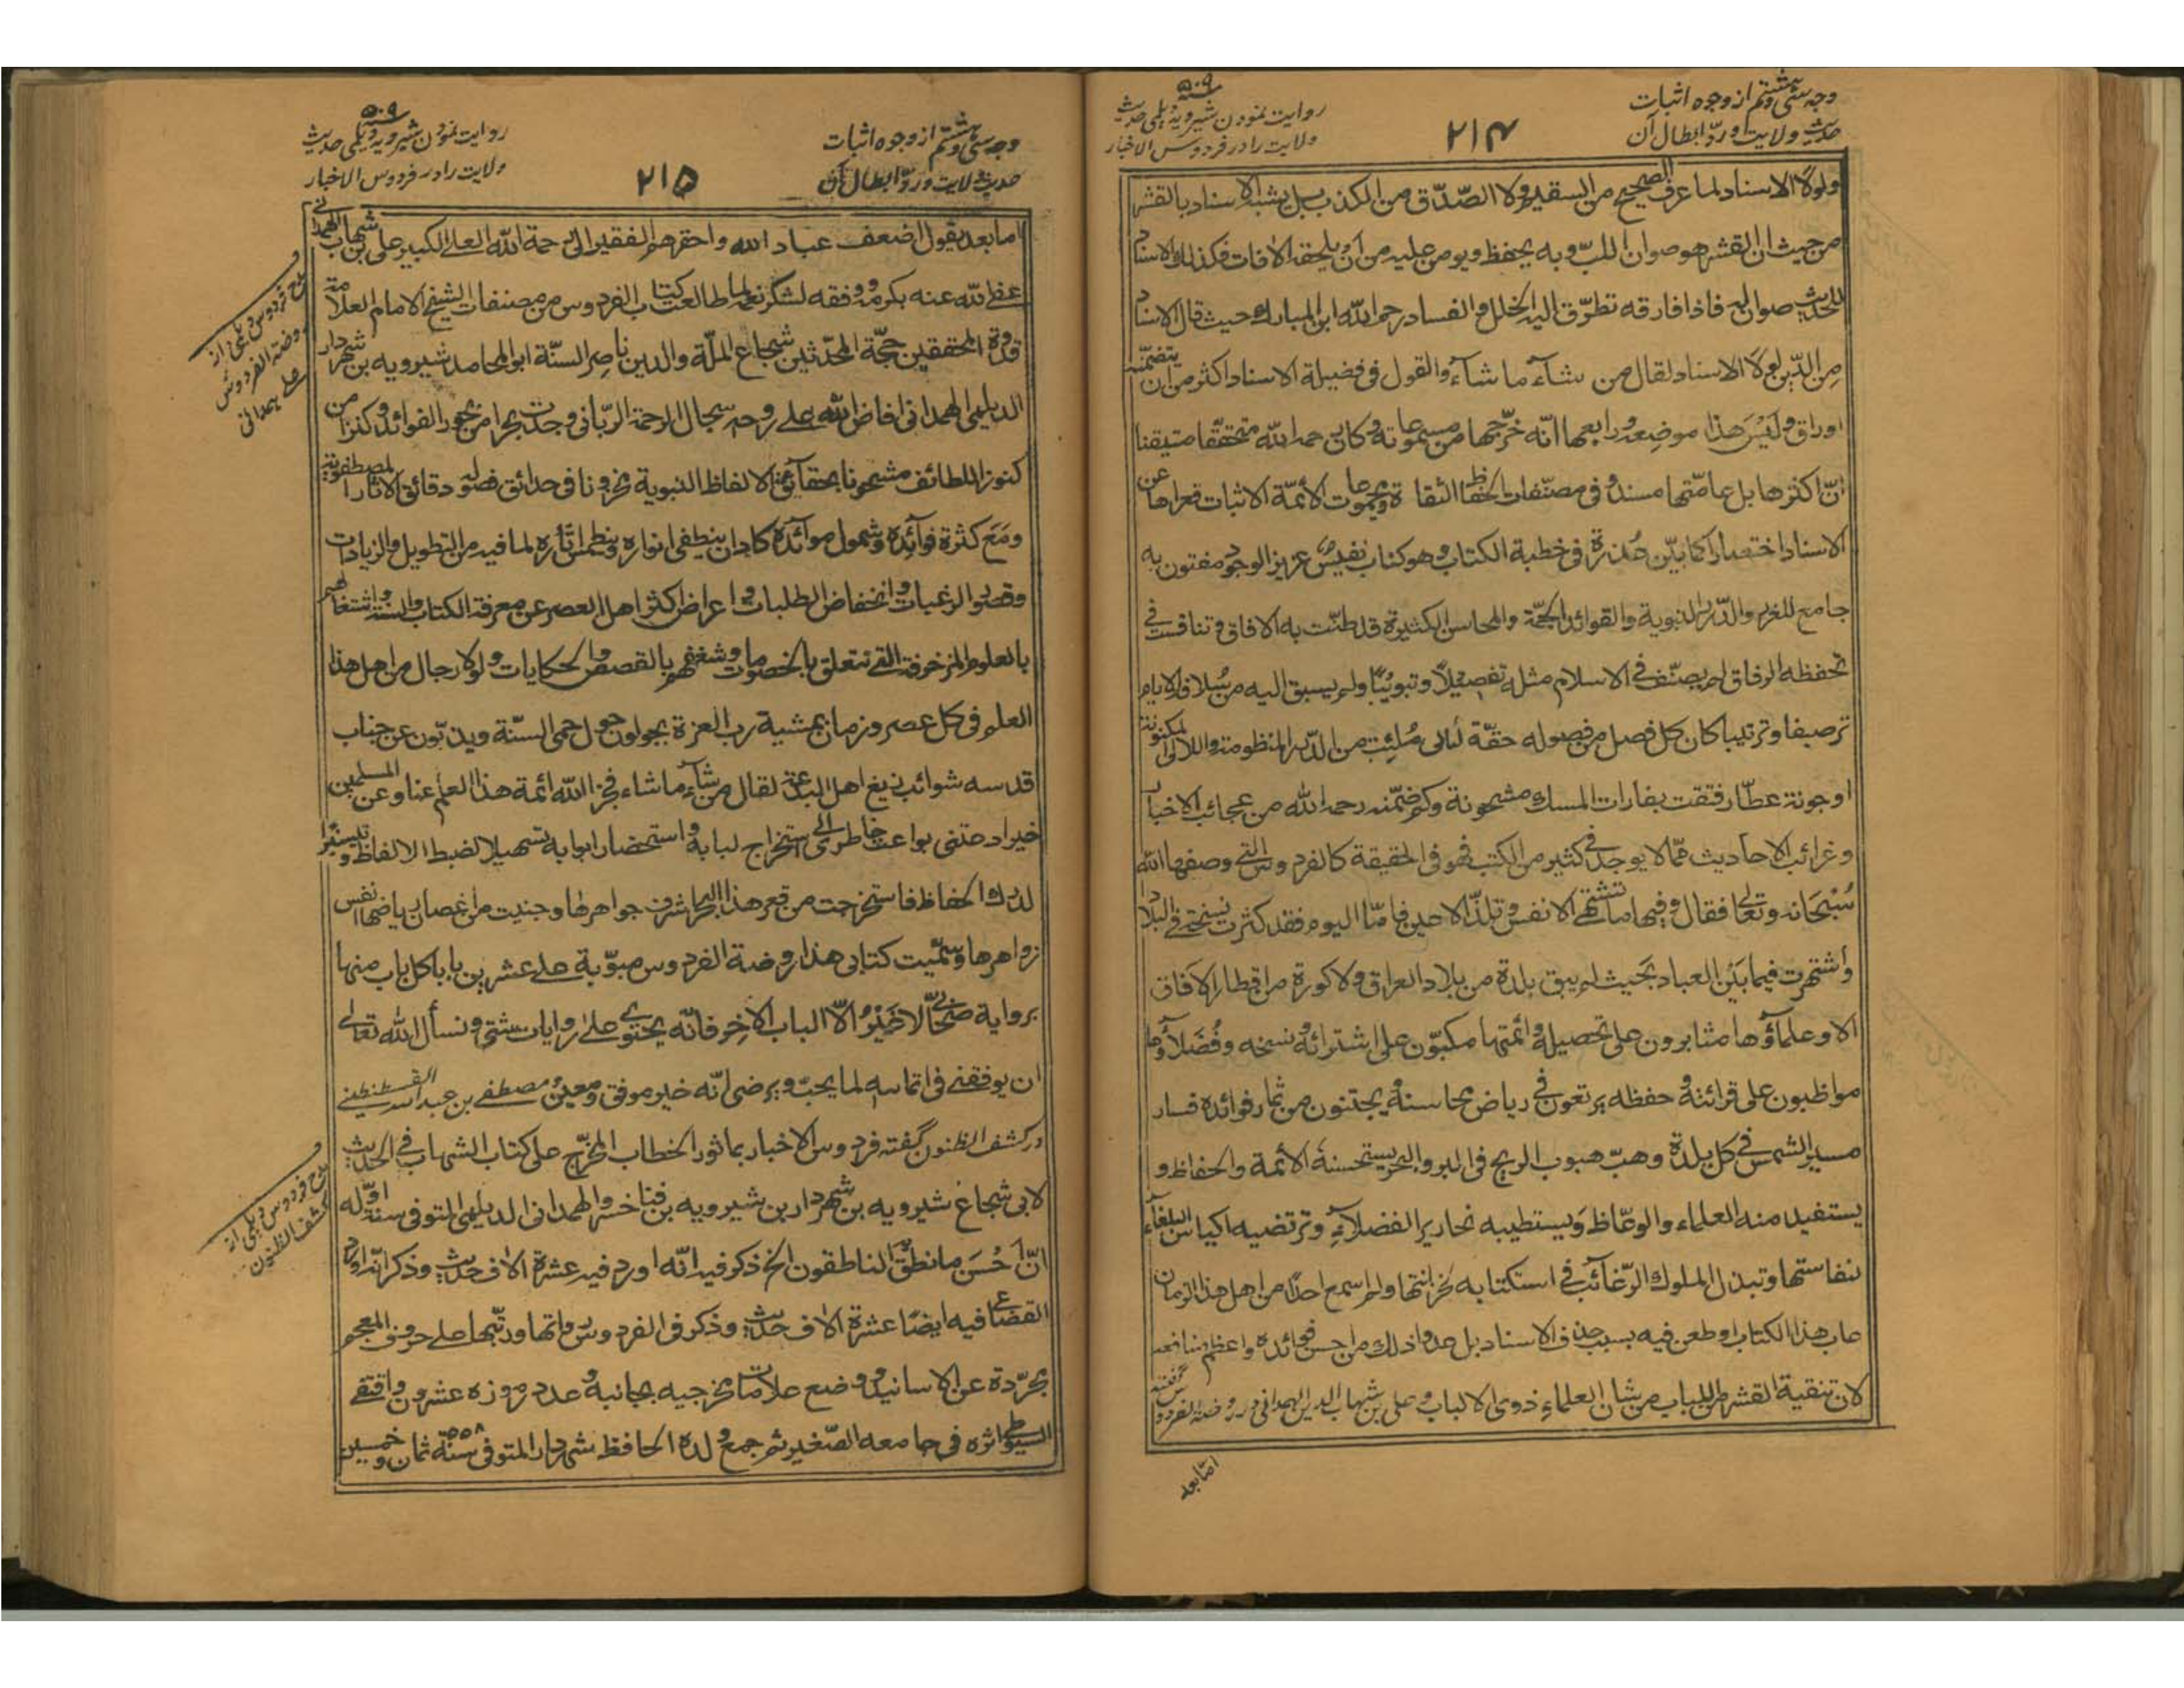 وجه سی و هشتم از وجوه اثبات
حدیث ولایت و ردّ ابطال آن
۲۱۴
۵۰۹
روایت نمودن شیرویه دیلمی حدیث
ولایت را در فردوس الاخبار
ولولا الاسناد لما عرف الصحیح من السقیم ولا الصّدق من الکذب بل یشبه الاسناد بالقشر
من حیث ان القشر هو صوان اللبّ وبه یحفظ ویومن علیه من ان یلحقه الآفات فکذلک الاسناد
للحدیث صوان له فاذا فارقه تطرّق الیه الخلل والفساد رحم الله ابن المبارک حیث قال الاسناد
من الدّین لولا الاسناد لقال من شآء ما شآء والقول فی فضیلة الاسناد اکثر من ان یتضمّنه
اوراق ولَیْسَ هذا موضعه ورابعها انّه خرّجها من مسموعاته وکان رحمه الله متحققا متیقنا
انّ اکثرها بل عامّتها مسندة فی مصنّفات الحفّاظ الثقاة ومجموعات الأئمّة الاثبات فعراها عن
الاسناد اختصارا کما بیّن عُذره فی خطبة الکتاب وهو کتاب نفیس عزیز الوجود مفتون به
جامع للغرر والدّرر النبویة والفوائد الجمّة والمحاسن الکثیرة قد طنّت به الآفاق وتنافست فی
تحفظه الرفاق لم یصنّف فی الاسلام مثله تفصیلاً وتبویبًا ولم یسبق الیه من سلاف الایام
ترصیفا وترتیبا کان کل فصل من فصوله حقّة لآلی مُلِئت من الدّرر المنظومة واللآلی المکنونة
او جونة عطّار فتقت بفارات المسک مشحونة وکم ضمّنه رحمه الله من عجائب الاخبار
وغرائب الاحادیث ممّا لا یوجد فی کثیر من الکتب فهو فی الحقیقة کالفردوس التی وصفها الله
سُبْحَانه وتعالی فقال وفیها ما تشتهی الانفس وتلذّ الاعین فامّا الیوم فقد کثرت نسخته فی البلاد
واشتهرت فیما بَیْن العباد بحیث لم یبق بلدة من بلاد العراق ولا کورة من اقطار الآفاق
الا وعلماؤها مثابرون علی تحصیله وائمتها مکبّون علی اشترائه ونسخه وفُضَلاؤها
مواظبون علی قرائته وحفظه یرتعون فی ریاض محاسنه ویجتنون من ثمار فوائده فسار
مسیر الشمس فی کل بلدة وهبّ هبوب الریح فی البر والبحر یستحسنه الأئمة والحفاظ و
یستفید منه العلماء والوعّاظ وَیستطیبه نحاریر الفضلآء وترتضیه اکیاس البلغآء
لنفاستها وتبذل الملوک الرّغآئب فی استکتابه لخزانتها ولم اسمع احدًا من اهل هذا الزمان
عاب هذا الکتاب او طعن فیه بسبب حذف الاسناد بل عدوا ذلک من احسن فوائده واعظم منافعه
لان تنقیة القشر من اللباب من شان العلماء ذوی الالباب وعلی بن شهاب الدین الهمدانی در روضة الفردوس گفته
امّا بعد
وجه سی و هشتم از وجوه اثبات
حدیث ولایت و ردّ ابطال آن
۲۱۵
۵۰۹
روایت نمودن شیرویه دیلمی حدیث
ولایت را در فردوس الاخبار
اما بعد یقول اضعف عباد الله واحقرهم الفقیر الی رحمة الله العلی الکبیر علی بن شهاب الهمدانی
عفی الله عنه بکرمه ووفقه لشکر نعمه لما طالعت کتاب الفردوس من مصنفات الشیخ الامام العلامة
قدوة المحققین حجّة المحدّثین شجاع الملّة والدین ناصر السنّة ابو المحامد شیرویه بن شهردار
الدیلمی الهمدانی افاض الله علی روحه سجال الرحمة الرّبانی وجدت بحرا من بحور الفوائد وکنزا من
کنوز اللطائف مشحونا بحقآئق الالفاظ النبویة مخزونا فی حدائق فصوله دقائق الآثار المصطفویة
ومَعَ کثرة فوآئده وشمول موآئده کاد ان ینطفی انواره وینطمس آثاره لما فیه من التطویل والزیادات
وقصور الرغبات وانخفاض الطلبات واعراض اکثر اهل العصر عن معرفة الکتاب والسنة واشتغالهم
بالعلوم المزخرفة التی تتعلق بالخصومات وشغفهم بالقصص والحکایات ولولا رجال من اهل هذا
العلم فی کل عصر وزمان بمشیة رب العزة یجولون حول حمی السنّة ویذبّون عن جناب
قدسه شوائب زیغ اهل البدعة لقال من شآء ما شاء فجزا الله ائمة هذا العلم عنا وعن المسلمین
خیرا دعتنی بواعث خاطری الی استخراج لبابه واستحضار ابوابه تسهیلا لضبط الالفاظ وتیسیرًا
لدرک الحفاظ فاستخرجت من قعر هذا البحر اشرف جواهرها وجنیت من اغصان ریاضها انفس
زواهرها وسمّیت کتابی هذا روضة الفردوس مبوّبة علی عشرین بابا کل باب منها
بروایة صحابی الا غَیْرُ الّا الباب الآخر فانّه یحتوی علی روایات شتی ونسأل الله تعالی
ان یوفقنی فی اتمامه لما یحبّ ویرضی انّه خیر موفق ومعین ومصطفی بن عبد الله القسطنطینی
در کشف الظنون گفته فردوس الاخبار بماثور الخطاب المخرّج علی کتاب الشهاب فی الحدیث
لابی شجاع شیرویه بن شهردار بن شیرویه بن فنا خسرو الهمدانی الدیلمی المتوفی سنة اوّله
انّ احْسَن ما نطق به الناطقون الخ ذکر فیه انّه اورد فیه عشرة آلاف حدیث وذکر انّه اورد
القضاعی فیه ایضًا عشرة آلاف حدیث وذکر فی الفردوس رواتها ورتّبها علی حروف المعجم
مجرّدة عن الاسانید ووضع علامات مخرجیه بجانبه وعدد رموزه عشرون واقتفی
السیوطی اثره فی جامعه الصّغیر ثم جمع ولده الحافظ شهردار المتوفی سنة ۵۵۸ ثمان وخمسین
مدح فردوس دیلمی از
روضة الفردوس
علی همدانی
مدح فردوس دیلمی از
کشف الظنون